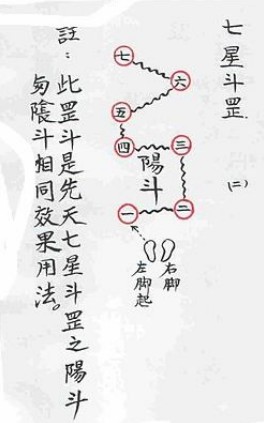 七星斗罡.
(二)
七
六
五
四
三
二
一
陽斗
右脚
左脚起
註：此罡斗是先天七星斗罡之陽斗
匆陰斗相同效果用法。